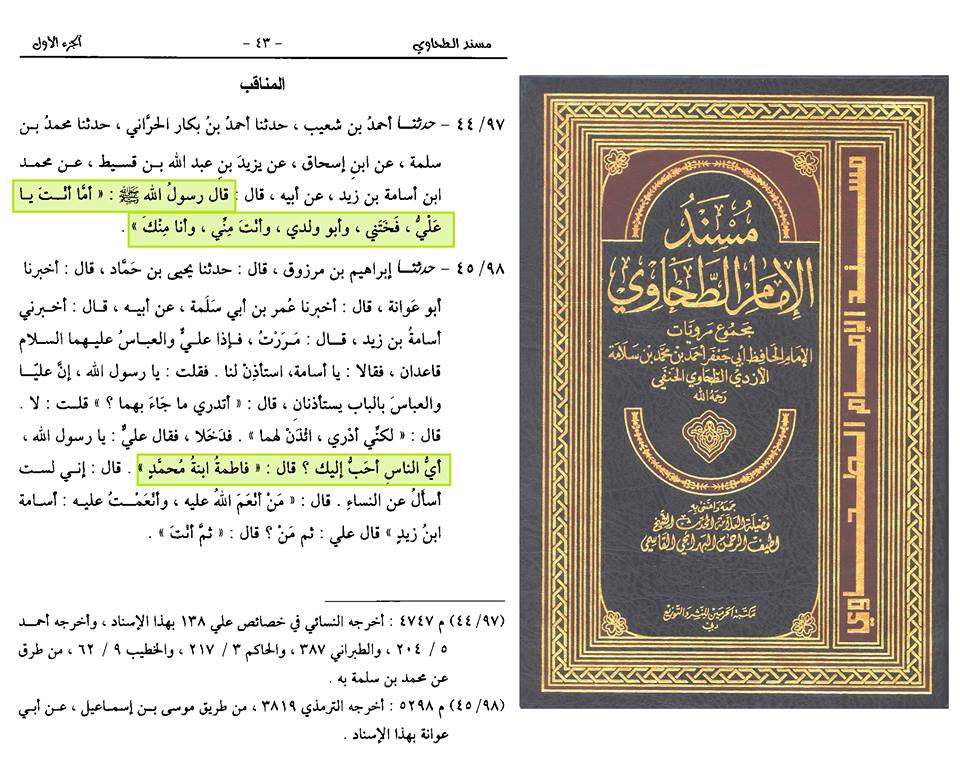 مسند الطحاوي - ٤٣ - الجزء الأول
المناقب
٤٤/٩٧ - حدثنا أحمدُ بن شعيب ، حدثنا أحمدُ بنُ بكار الحرَّاني ، حدثنا محمدُ بن
سلمة ، عن ابنِ إسحاق ، عن يزيدَ بنِ عبد الله بن قسيط ، عن محمد
ابن أسامة بن زيد ، عن أبيه ، قال : قال رسولُ الله ﷺ : « أمَّا أنْتَ يا
عَلْيُّ ، فَخَتَنِي ، وأبو ولدي ، وأنْتَ مِنِّي ، وأنا مِنْكَ » .
٤٥/٩٨ - حدثنا إبراهيم بن مرزوق ، قال : حدثنا يحيى بن حَمَّاد ، قال : أخبرنا
أبو عَوانة ، قال : أخبرنا عُمر بن أبي سَلَمة ، عن أبيه ، قال : أخبرني
أسامةُ بن زيد ، قال : مَرَرْتُ ، فإذا عليٌّ والعباسُ عليهما السلام
قاعدان ، فقالا : يا أسامة، استأذِنْ لنا . فقلت : يا رسول الله ، إنَّ عليًا
والعباسَ بالباب يستأذنان ، قال : « أتدري ما جَاءَ بهما ؟ » قلت : لا .
قال : « لكنِّي أدْري ، ائْذَنْ لهما » . فدَخَلا ، فقال عليٌّ : يا رسول الله ،
أيُّ الناسِ أحَبُّ إليك ؟ قال : « فاطمةُ ابنةُ مُحمَّدٍ » . قال : إني لست
أسألُ عن النساءِ . قال : « مَنْ أنْعَمَ اللهُ عليه ، وأنْعَمْتُ عليه : أسامة
ابنُ زيدٍ » قال علي : ثم مَنْ ؟ قال : « ثمَّ أنْتَ » .
(٤٤/٩٧) م ٤٧٤٧ : أخرجه النسائي في خصائص علي ١٣٨ بهذا الإسناد ، وأخرجه أحمد
٥ / ٢٠٤ ، والطبراني ٣٨٧ ، والحاكم ٣ / ٢١٧ ، والخطيب ٩ / ٦٢ ، من طرق
عن محمد بن سلمة به .
(٤٥/٩٨) م ٥٢٩٨ : أخرجه الترمذي ٣٨١٩ ، من طريق موسى بن إسماعيل ، عن أبي
عوانة بهذا الإسناد .
مُسْنَدُ
الإمَامِ الطَّحَاوِي
مَجمُوع مَرويَّات
الإمَام الحَافِظ أبي جَعفَر أحمَد بن محمَّد بن سَلَامَة
الأزدي الطَّحَاوي الحَنَفي
رَحِمَهُ الله
جمعَه وَاعتنى بِه
فَضِيلَة العَلَّامَة المُحدِّث الشَّيْخ
لطيف الرحمن البهرائجي القاسمي
مكتبة الحرمين للنشر والتوزيع
دبي
مسند الإمام الطحاوي